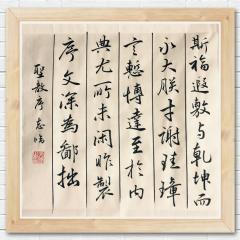 斯福遐敷与乾坤而
永大朕才謝珪璋
言慙博達至於內
典尤所未閑昨製
序文深為鄙拙
聖教序